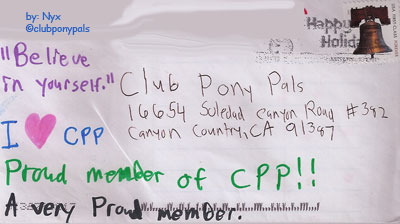 by: Nyx
@clubponypals
Happy
Holidays
"Believe
in yourself."
Club Pony Pals
16654 Soledad Canyon Road #392
Canyon Country, CA 91387
I ♥ CPP
Proud member of CPP!!
A very Proud member.